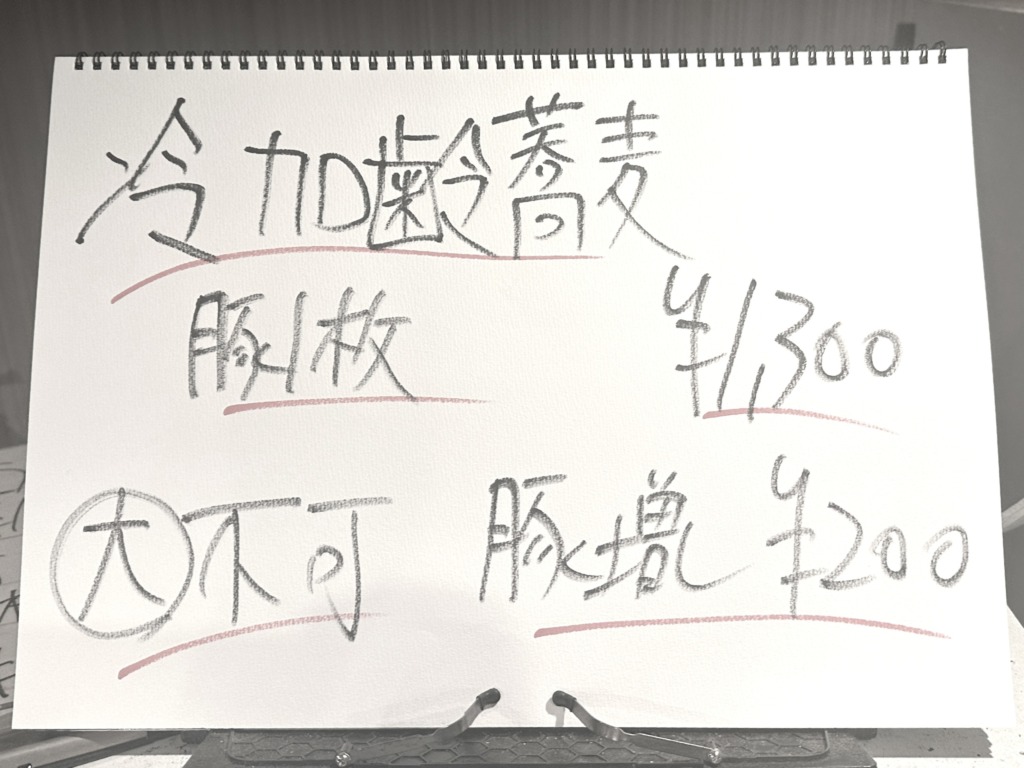 冷加齢蕎麦
豚1枚 ¥1,300
大不可 豚増 ¥200